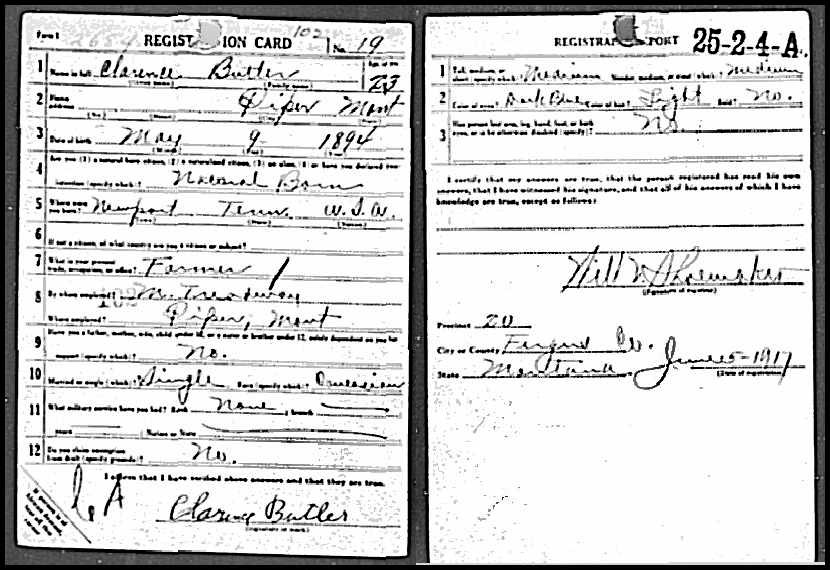 Form 1 REGISTRATION CARD No. 19
1 Name in full Clarence Butler Age in yrs 23
(Given name) (Family name)
2 Home address Piper Mont
(No.) (Street) (City) (State)
3 Date of birth May 9 1894
(Month) (Day) (Year)
4 Are you (1) a natural born citizen, (2) a naturalized citizen, (3) an alien, (4) or have you declared your
intention (specify which)? Natural Born
5 Where were you born? Newport Tenn. U.S.A.
(Town) (State) (Nation)
6 If not a citizen, of what country are you a citizen or subject?
7 What is your present trade, occupation, or office? Farmer
8 By whom employed?
Where employed? Piper, Mont
9 Have you a father, mother, wife, child under 12, or a sister or brother under 12, solely dependent on you for
support (specify which)? No.
10 Married or single (which)? Single Race (specify which)? Caucasian
11 What military service have you had? Rank None ; branch
years ; Nation or State
12 Do you claim exemption from draft (specify grounds)? No.
I affirm that I have verified above answers and that they are true.
Clarence Butler
(Signature or mark)
REGISTRAR'S REPORT 25-2-4-A.
1 Tall, medium, or short (specify which)? Medium Slender, medium, or stout (which)? Medium
2 Color of eyes? Dark Blue Color of hair? Light Bald? No.
3 Has person lost arm, leg, hand, foot, or both eyes, or is he otherwise disabled (specify)? No.
I certify that my answers are true, that the person registered has read his own
answers, that I have witnessed his signature, and that all of his answers of which I have
knowledge are true, except as follows:
Will W Shoemaker
(Signature of registrar)
Precinct 20
City or County Fergus Co.
State Montana June 5-1917
(Date of registration)